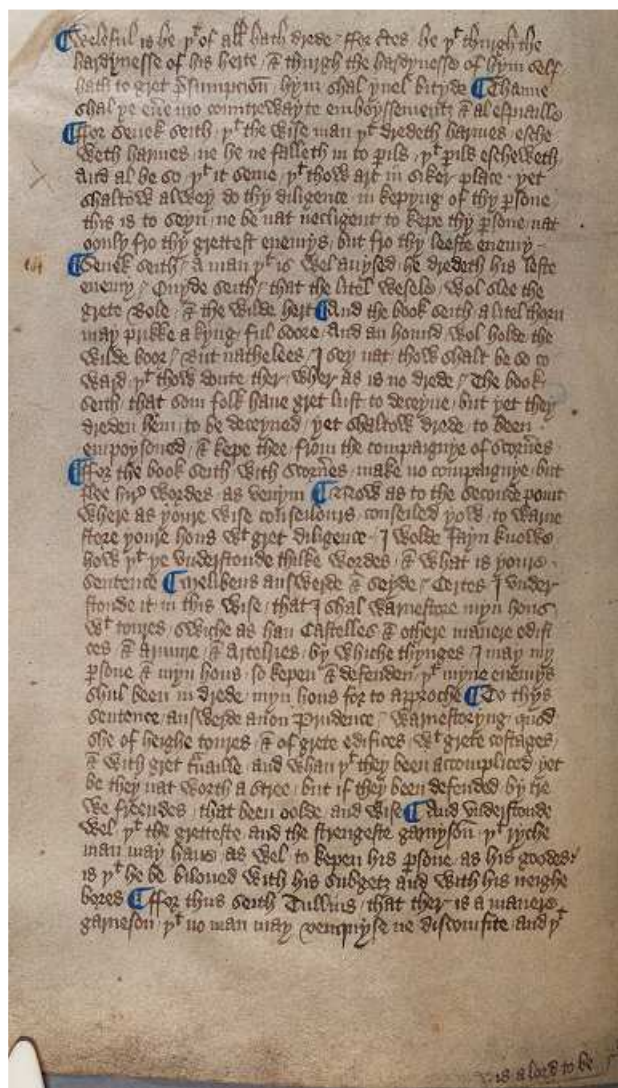 ¶Weleful is he þt of all hath drede / ffor certes he þt thurgh the
hardynesse of his herte / & thurgh the hardynesse of hym self
hath to gret p̲sumpcion̄ / hym shal yuel bityde ¶Thanne
shal ye eue mo countrewayte emboyssementz & al espiaille
¶ffor Senek seith / þt the wise man þt dredeth harmes / esche
weth harmes / ne he ne falleth in to p̲ils / þt p̲ils escheweth
And al be so / þt it seme / þt thow art in siker place / yet
shaltow alwey do thy diligence / in kepyng of thy p̲sone
this is to seyn / ne be nat necligent to kepe thy p̲sone / nat
oonly fro thy grettest enemys / but fro thy leeste enemy
¶Senek seith / A man þt is wel auysed / he dredeth his leste
enemy / Ouyde seith / that the litel wesele / wol slee the
grete bole / & the wilde hert ¶And the book seith / a litel thorn
may prikke a kyng / ful soore / And an hound / wol holde the
wilde boor / But nathelees / I sey nat / thow shalt be so co
ward / þt thow doute ther / wher as is no drede / The book
seith / that som folk haue gret lust to deceyue / but yet they
dreden hem / to be deceyued / yet shaltow drede / to been
empoysoned / & kepe thee / from the compaignye of scorn̄es
¶ffor the book seith / with scorn̄es / make no compaignye / but
flee hir wordes / as venym ¶Now as to the seconde point
where as youre wise conseilours / conseiled yow / to warne
store youre hous wt gret diligence / I wolde fayn knowe
how þt ye vnderstonde thilke wordes / & what is youre
sentence ¶Melibeus answerde & seyde / Certes I vnder
stonde it in this wise / that I shal warnestore myn hous
wt toures / swiche as han Castelles & othere manere edifi
ces & armure / & Artelries / by whiche thynges / I may my
p̲sone & myn hous / so kepen & defenden / þt myne enemys
shul been in drede / myn hous for to approche ¶To thys
sentence / answerde anon Prudence / warnestoryng / quod
she of heighe toures / & of grete edifices / wt grete costages /
& with gret t̄uaille / and whan þt they been accompliced / yet
be they nat worth a stree / but if they been defended / by tre
we freendes / that been oolde / and wise ¶And vnderstonde
wel / þt the gretteste / and the strengeste garnyson̄ / þt ryche
man may haue / as wel to kepen his p̲sone / as his goodes /
is þt he be biloued with his subgetz / and with his neighe
bores ¶ffor thus seith Tullius / that ther is a manere
garneson / þt no man may venquyse ne disconfite / and þt
is a lord to be